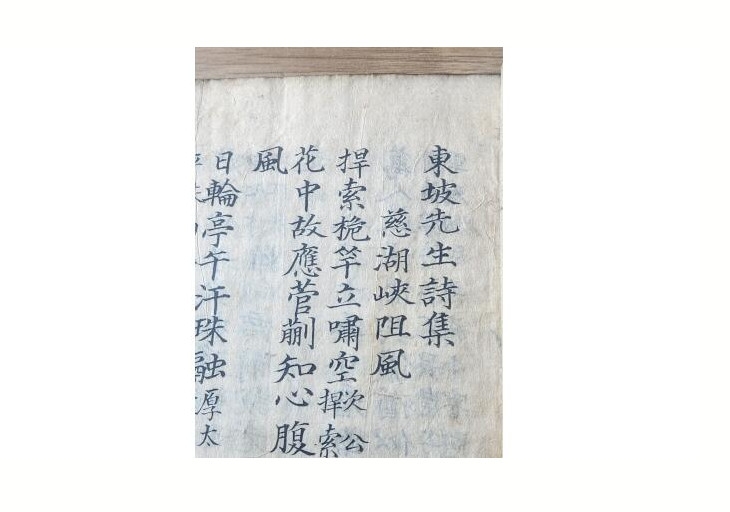 東坡先生詩集
慈湖峽阻風
捍索桅竿立嘯空次公
捍索
花中故應菅蒯知心腹
風
日輪亭午汗珠融
厚太